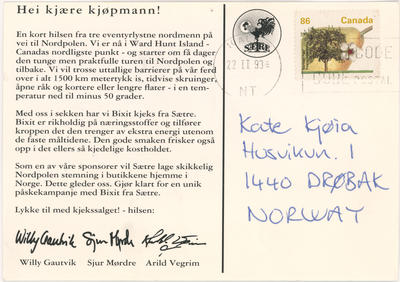 Hei kjære kjøpmann!
En kort hilsen fra tre eventyrlystne nordmenn på
vei til Nordpolen. Vi er nå i Ward Hunt Island -
Canadas nordligste punkt - og starter om få dager
den tunge men praktfulle turen til Nordpolen og
tilbake. Vi vil trosse uttallige barrierer på vår ferd
over i alt 1500 km metertykk is, tidvise skruinger,
åpne råk og kortere eller lengre flater - i en tem-
peratur ned til minus 50 grader.
Med oss i sekken har vi Bixit kjeks fra Sætre.
Bixit er rikholdig på næringsstoffer og tilfører
kroppen det den trenger av ekstra energi utenom
de faste måltidene. Den gode smaken frisker også
opp i det ellers så kjedelige kostholdet.
Som en av våre sponsorer vil Sætre lage skikkelig
Nordpolen stemning i butikkene hjemme i
Norge. Dette gleder oss. Gjør klart for en unik
påskekampanje med Bixit fra Sætre.
Lykke til med kjekssalget! - hilsen:
Willy Gautvik Sjur Mørdre
Willy Gautvik Sjur Mørdre Arild Vegrim
SÆTRE
22 II 93
NT
86 Canada
CODE
POSTAL
Kate Kjøia
Husvikvn. 1
1440 DRØBAK
NORWAY